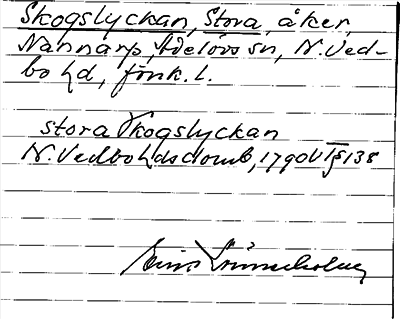 Skogslyckan, Stora, åker,
Nannarp, Adelövs sn, N. Ved-
bo hd, Jönk. l.
Stora Skogslyckan
N. Vedbo hds domb, 1790 VT § 138